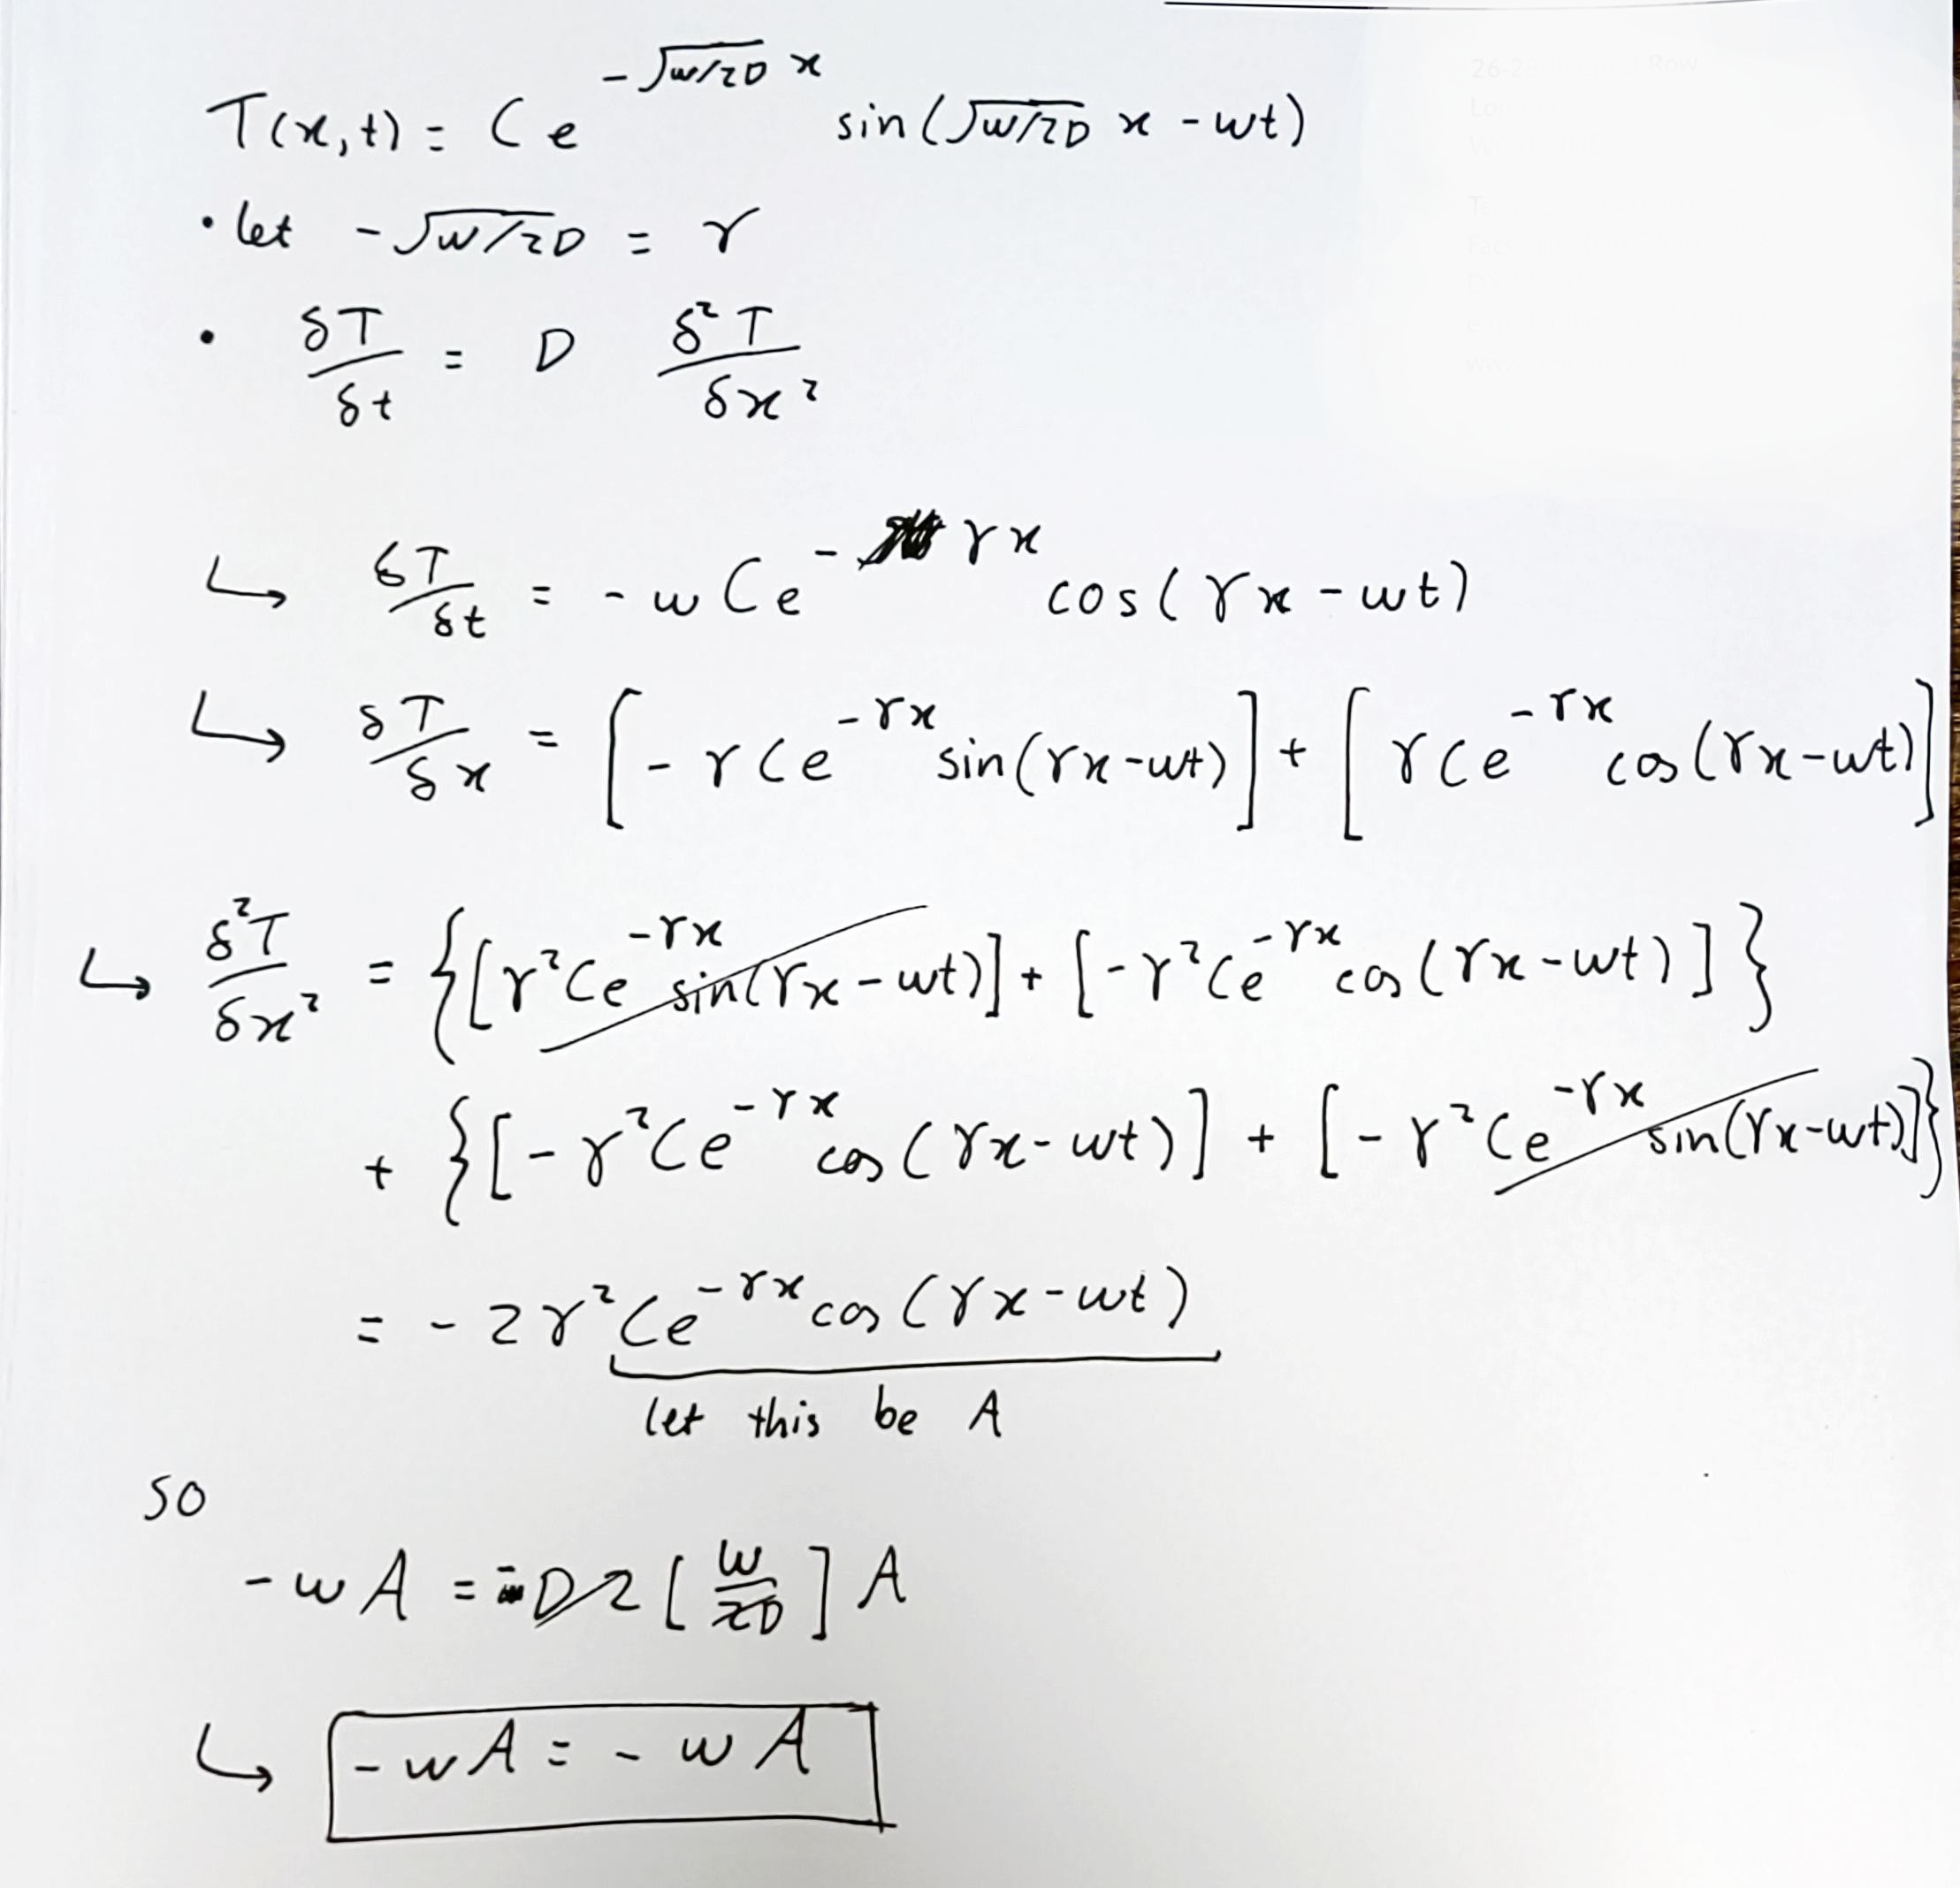 T(x,t) = Ce^{-√(w/2D) x} sin(√(w/2D) x - wt)
• let -√(w/2D) = γ
• δT/δt = D δ²T/δx²
↳ δT/δt = -wCe^{-γx} cos(γx - wt)
↳ δT/δx = [-γCe^{-γx} sin(γx-wt)] + [γCe^{-γx} cos(γx-wt)]
↳ δ²T/δx² = {[γ²Ce^{-γx} sin(γx-wt)] + [-γ²Ce^{-γx} cos(γx-wt)]}
+ {[-γ²Ce^{-γx} cos(γx-wt)] + [-γ²Ce^{-γx} sin(γx-wt)]}
= -2γ²Ce^{-γx} cos(γx-wt)
let this be A
so
-wA = -D2[w/2D]A
↳ -wA = -wA